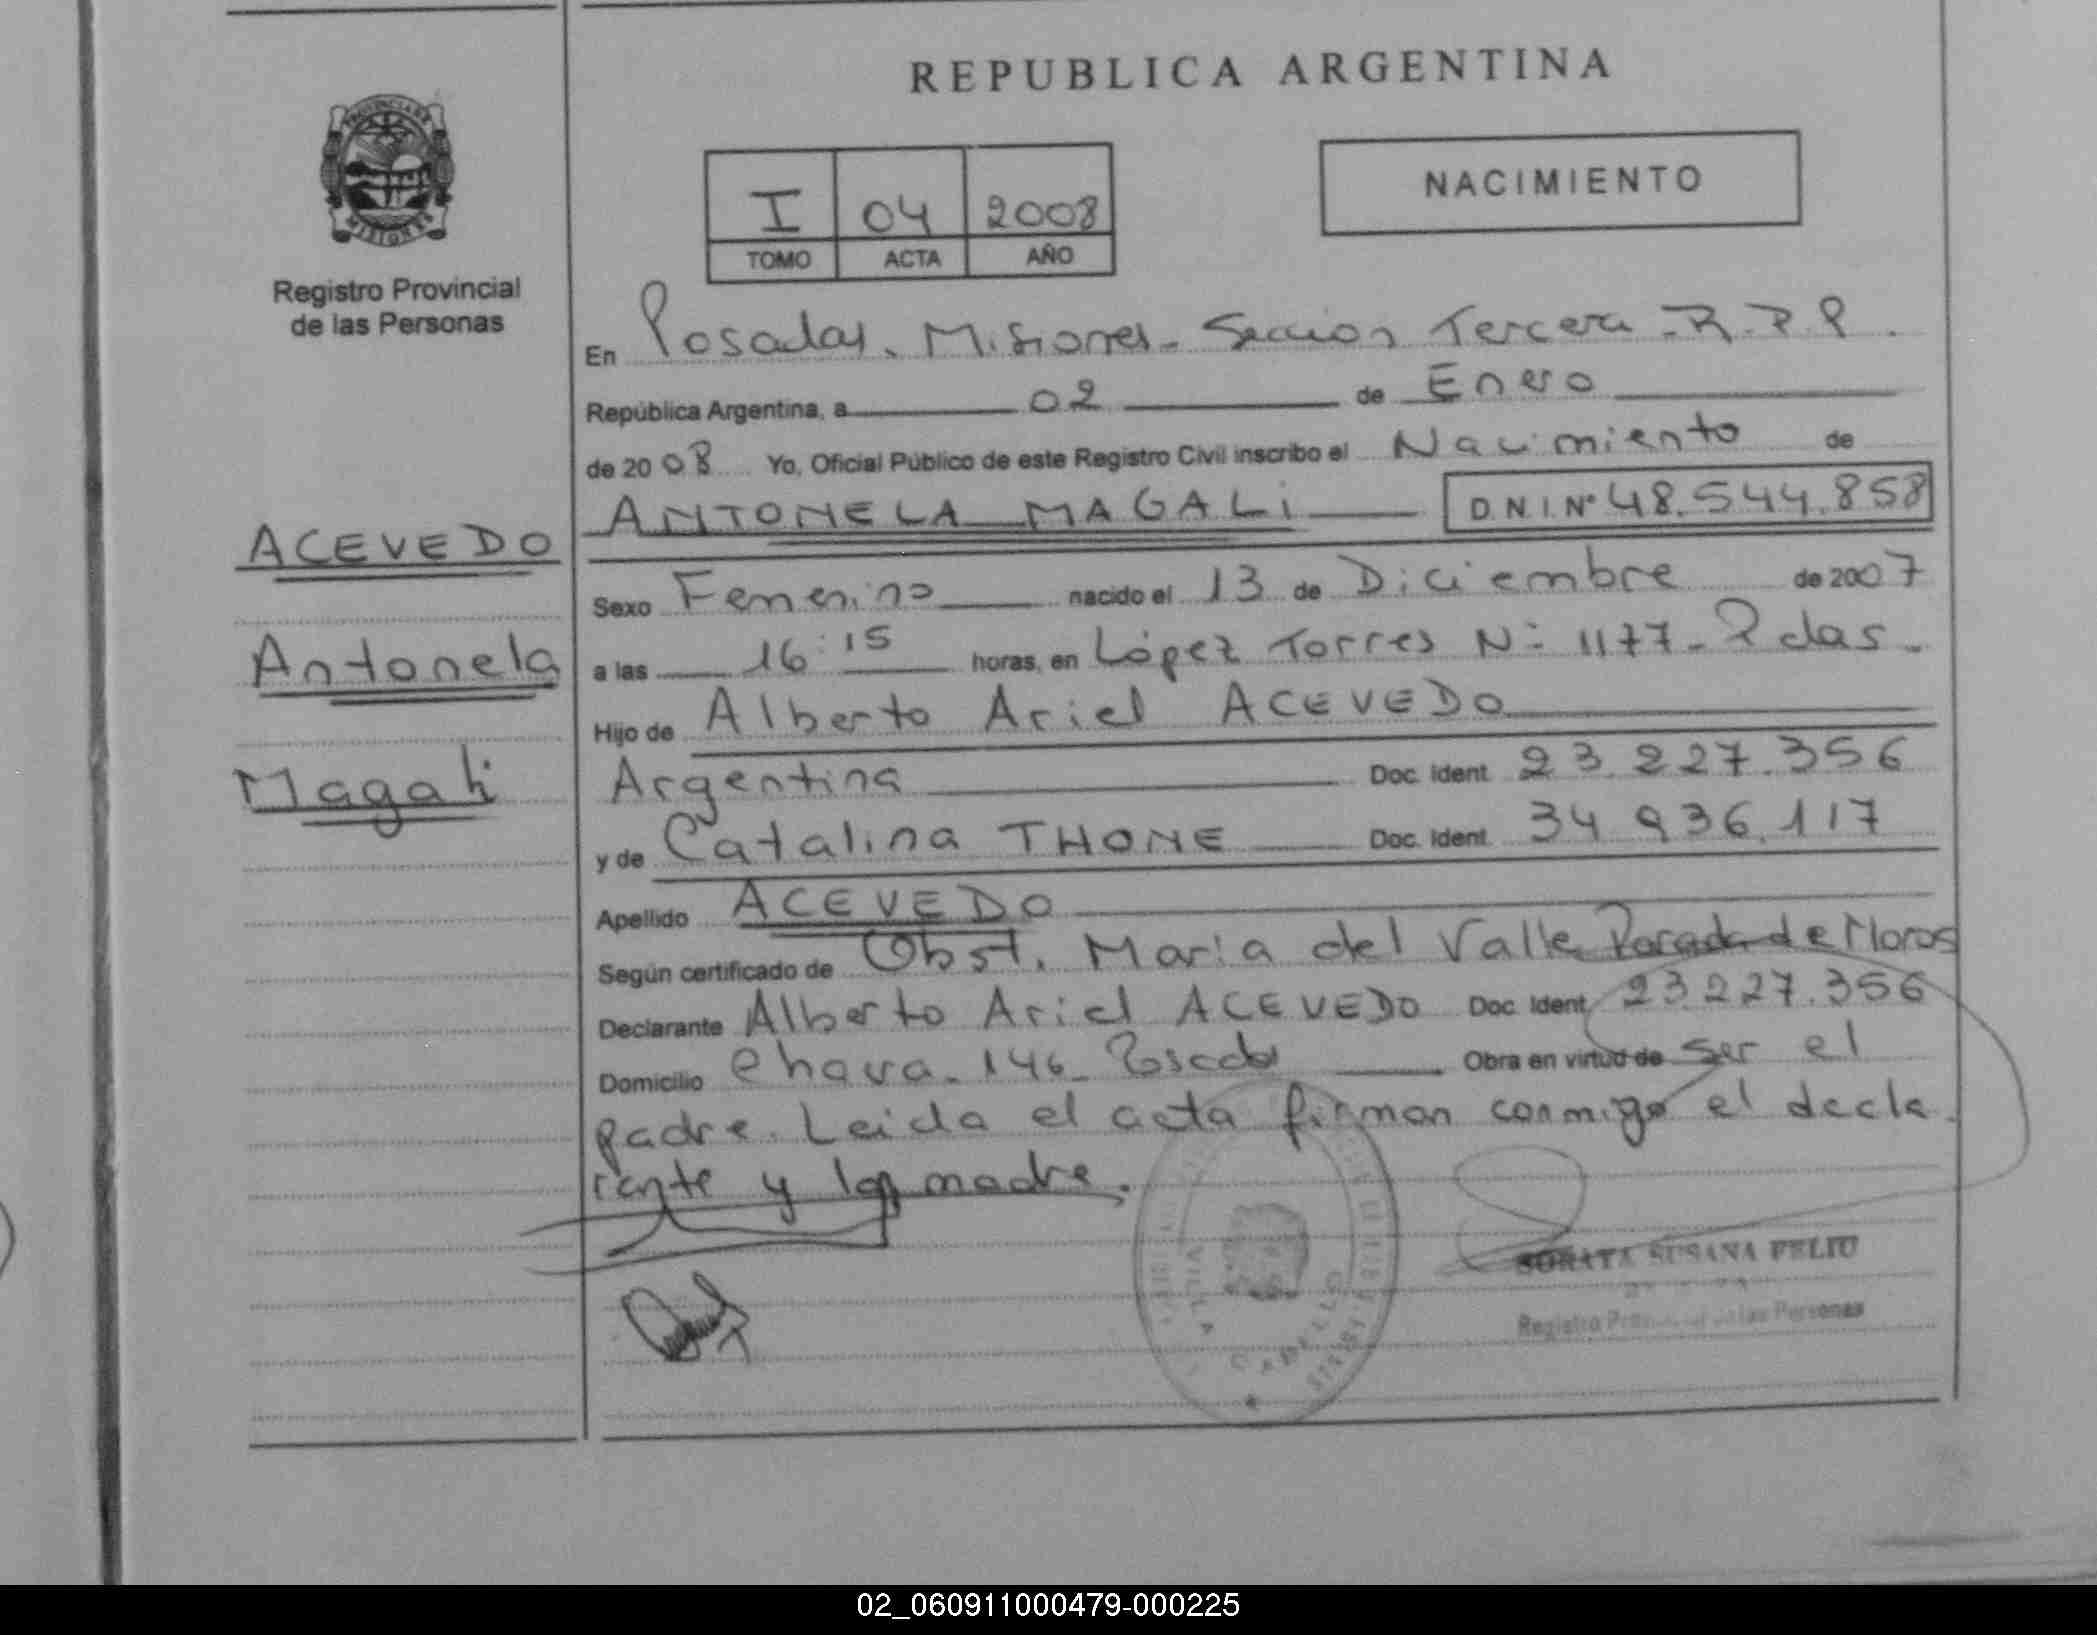 REPUBLICA ARGENTINA
PROVINCIA DE
MISIONES
Registro Provincial
de las Personas
I 04 2008
TOMO ACTA AÑO
NACIMIENTO
En Posadas, Misiones - Sección Tercera - R.P.P.
República Argentina, a 02 de Enero
de 2008 Yo, Oficial Público de este Registro Civil inscribo el Nacimiento de
ANTONELA MAGALI D.N.I.Nº 48.544.858
ACEVEDO
Antonela
Magali
Sexo Femenino nacido el 13 de Diciembre de 2007
a las 16:15 horas, en López Torres Nº 1177 - Pdas.
Hijo de Alberto Ariel ACEVEDO
Argentina Doc. Ident. 23.227.356
y de Catalina THONE Doc. Ident. 34.936.117
Apellido ACEVEDO
Según certificado de Obst. María del Valle de Moros
Declarante Alberto Ariel ACEVEDO Doc. Ident. 23.227.356
Domicilio 146 - Posadas Obra en virtud de ser el
padre. Leida el acta firman conmigo el decla
rante y la madre.
SUSANA FELIU
Registro las Personas
02_060911000479-000225